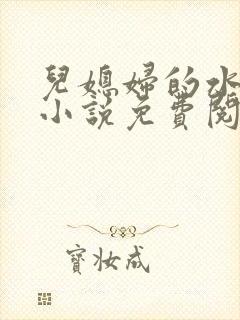 兒媳婦的水
小說免費閱
寶妝成